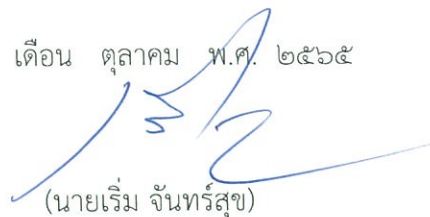 เดือน ตุลาคม พ.ศ. ๒๕๖๕
(นายเริ่ม จันทร์สุข)